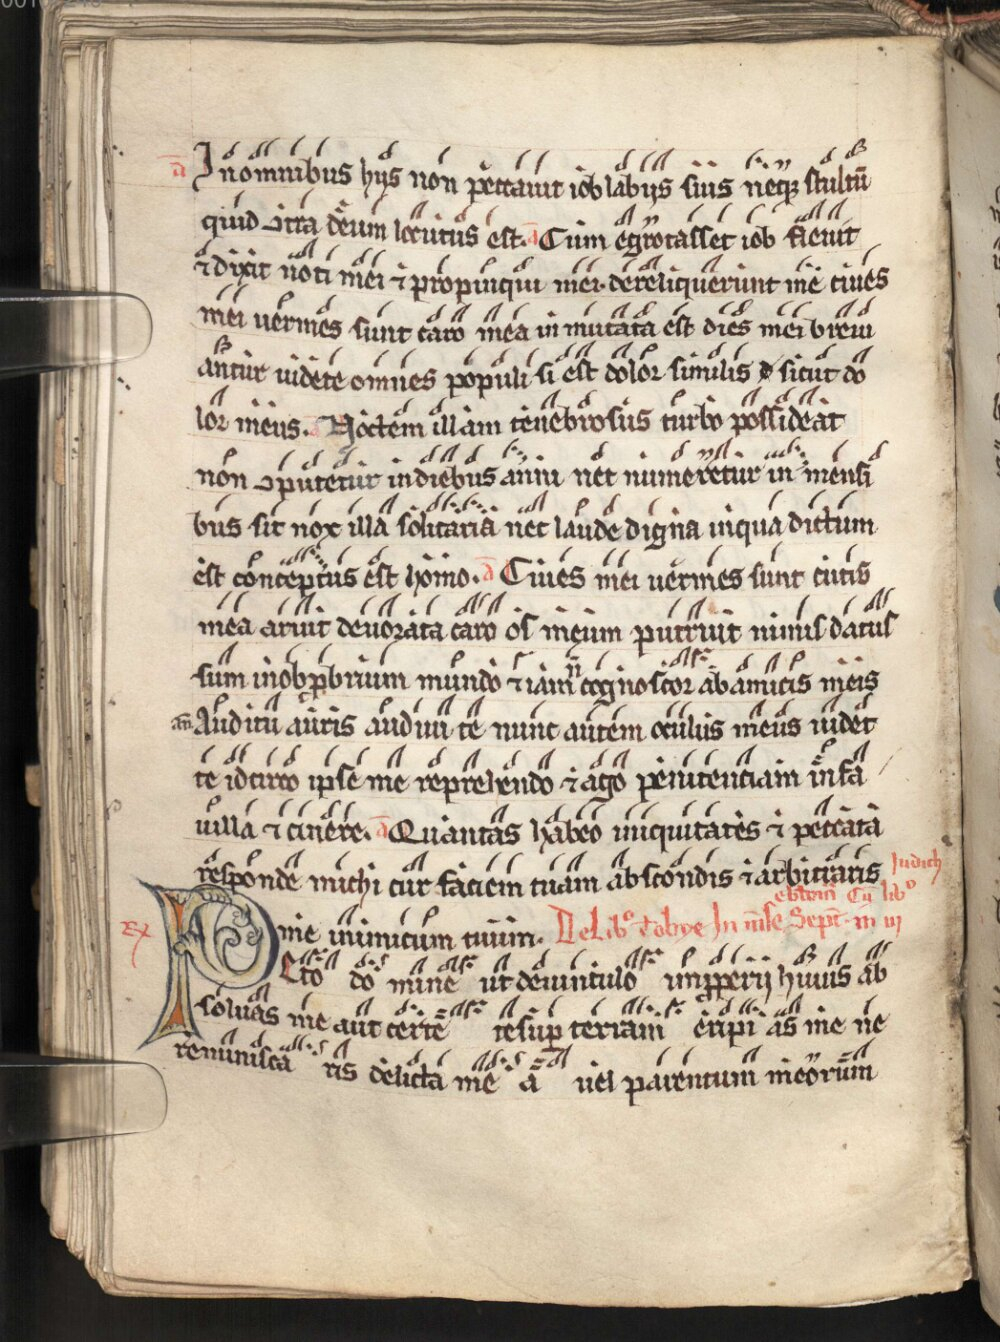 a Jn omnibus hijs non peccauit iob labijs suis neq; stultū
quid ↄtra deum locutus est. a Cum egrotasset iob fleuit
⁊ dixit noti mei ⁊ propinqui mei dereliquerunt me ciues
mei uermes sunt caro mea inmutata est dies mei breui
antur uidete omnes populi si est dolor similis sicut do
lor meus. a Noctem illam tenebrosus turbo possideat
non ↄputetur in diebus anni nec numeretur in mensi
bus sit nox illa solitaria nec laude digna in qua dictum
est conceptus est homo. a Ciues mei uermes sunt cutis
mea aruit deuorata caro os meum putruit nimis datus
sum in obprobrium mundo ⁊ iam n̄ cognoscor ab amicis meis
an Auditu auris audiui te nunc autem oculus meus uidet
te idcirco ipse me reprehendo ⁊ ago penitenciam in fa
uilla ⁊ cinere. a Quantas habeo iniquitates ⁊ peccata
responde michi cur faciem tuam abscondis ⁊ arbitraris
Judich
me inimicum tuum. De lib° thobye Jn mēse Sept. in iij
Rx Peto dō mine ut de uinculo impperij huius ab
soluas me aut certe resup terram eripi as me ne
reminisca ris delicta me a uel parentum meorum